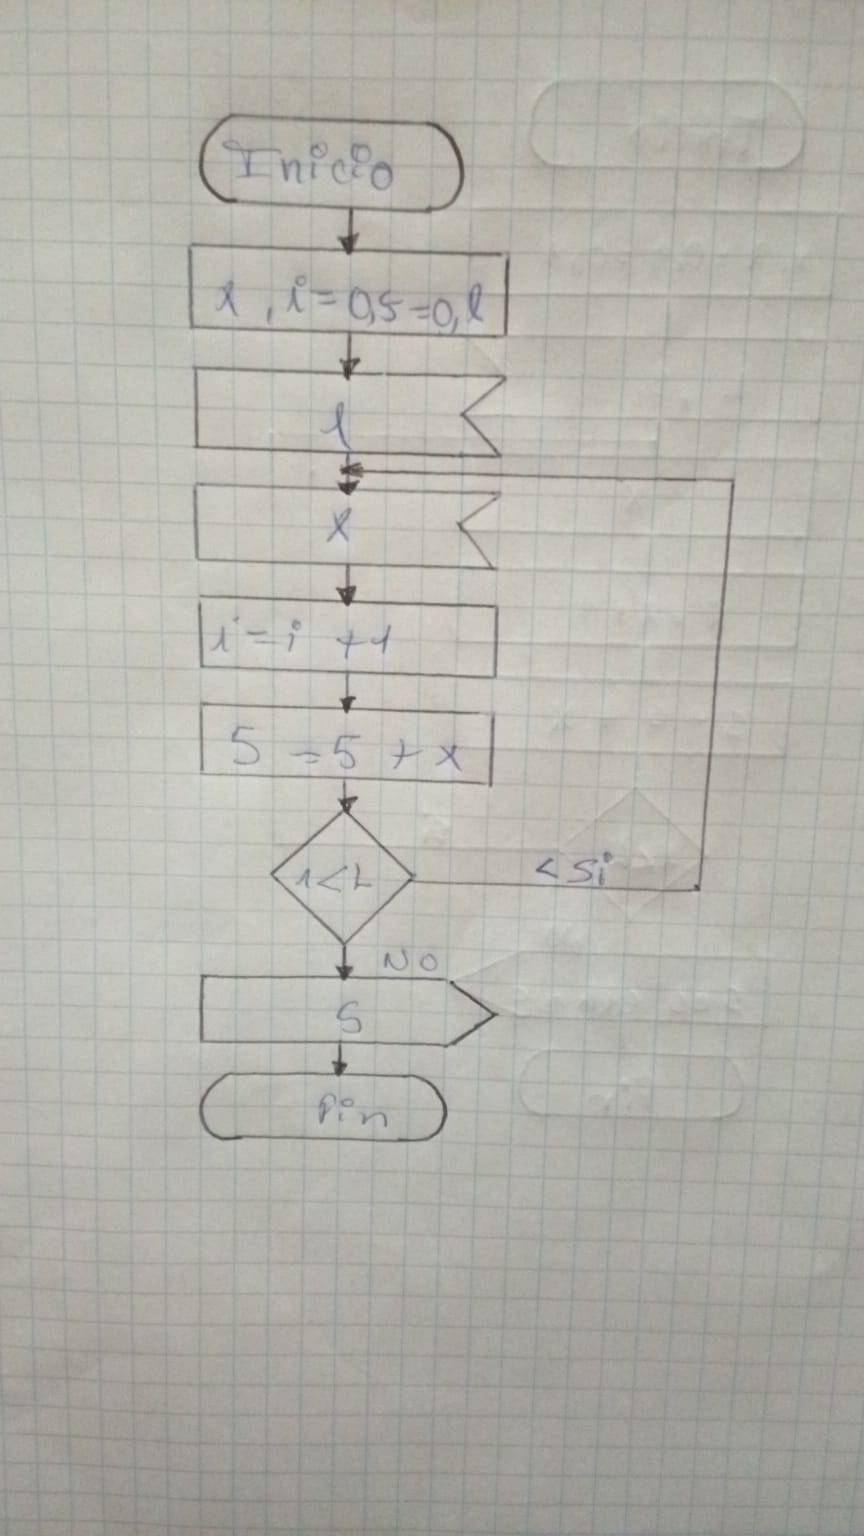 Inicio
x, i=0,5=0,l
l
x
i=i +1
5 =5 +x
1<L
<Si
NO
S
Fin